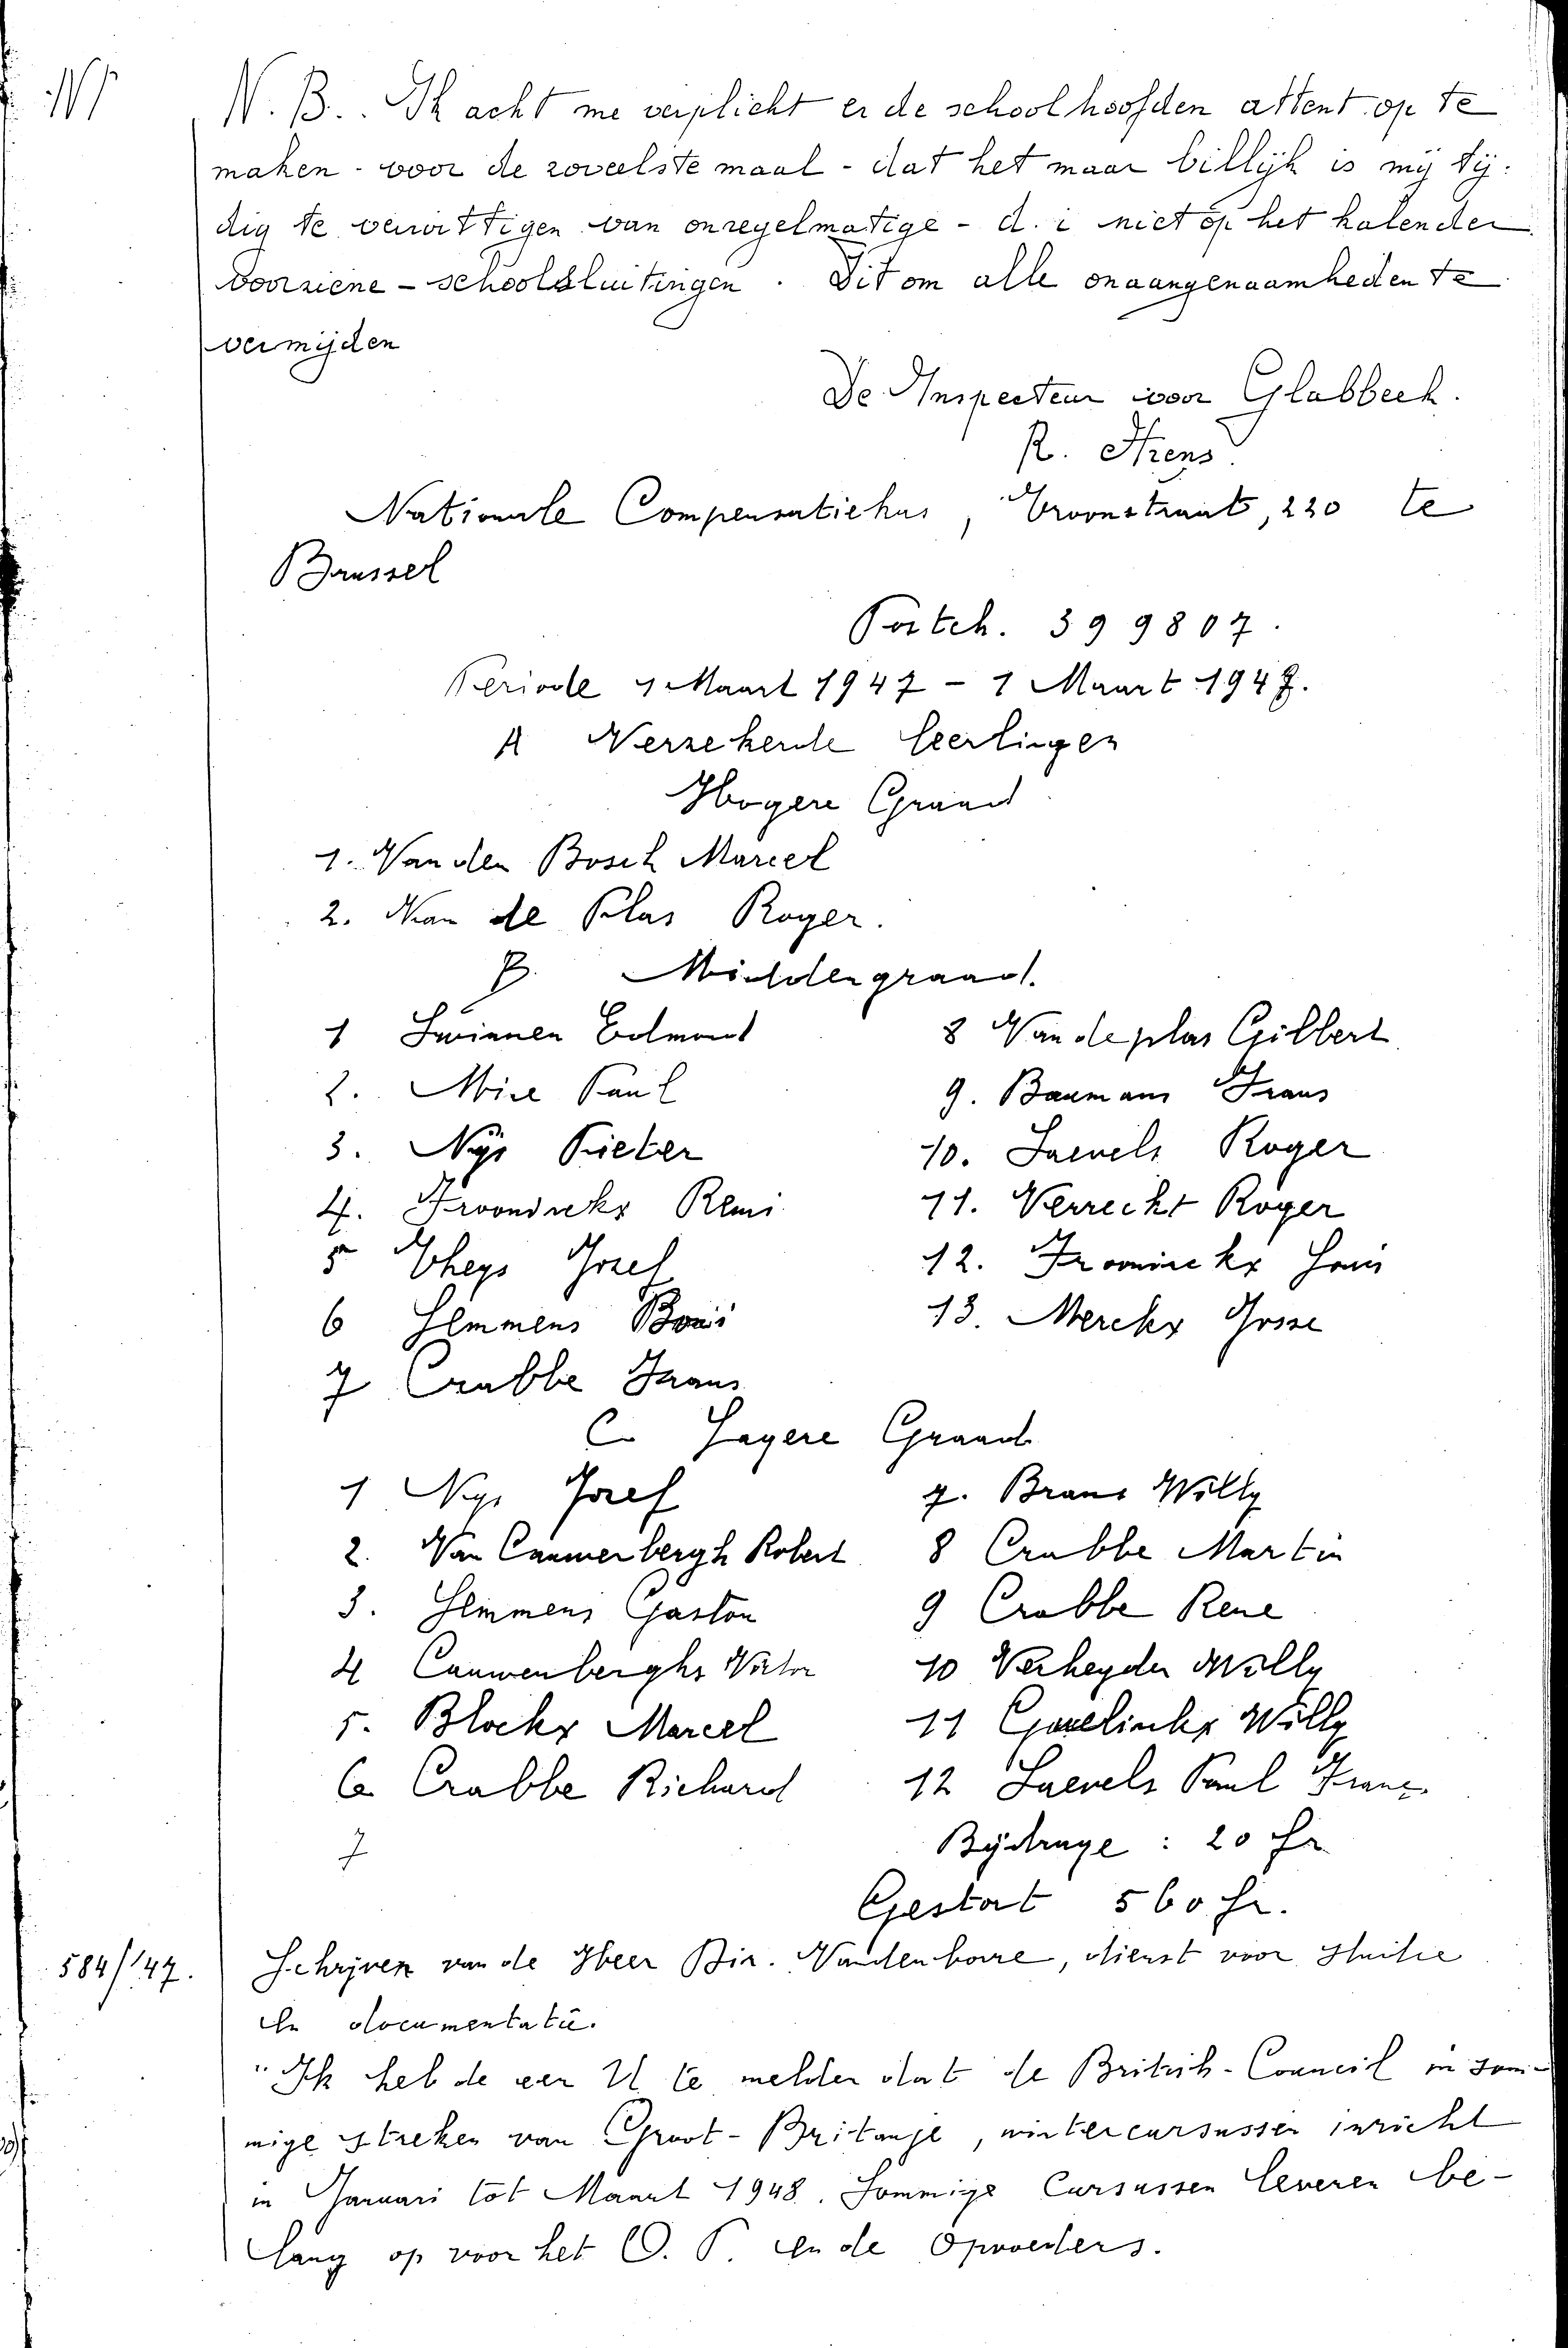 N. B. . Ik acht me verplicht er de schoolhoofden attent op te
maken - voor de zoveelste maal - dat het maar billijk is mij tij-
dig te verwittigen van onregelmatige - d. i niet op het kalender
voorziene - schoolsluitingen . Dit om alle onaangenaamheden te
vermijden
De Inspecteur voor Glabbeek.
R. Strens.
Nationale Compensatiekas, Troonstraat, 220 te
Brussel
Postch. 399807.
Periode 1 Maart 1947 - 1 Maart 1947.
A Verzekerde leerlingen
Hogere Graad
1. Van den Bosch Marcel
2. Van de Plas Roger.
B. Middengraad.
1 Swinnen Edmond
2. Mice Paul
3. Nijs Pieter
4. Froonincks Remi
5 Theys Jozef
6 Lemmens Boni
7 Crabbe Frans
8 Van de plas Gilbert
9. Baumans Frans
10. Laevels Roger
11. Verrecht Roger
12. Froonincks Henri
13. Merckx Josse
C Lagere Graad
1 Nys Jozef
2. Van Cauwenbergh Robert
3. Lemmens Gaston
4 Cauwenberghs Victor
5. Blockx Marcel
6 Crabbe Richard
7
7. Brans Willy
8 Crabbe Martin
9 Crabbe Rene
10 Verheyden Willy
11 Willy
12 Laevels Paul Frans
Bijdrage : 20 fr
Gestort 560 fr.
584/'47. Schrijven van de Heer Dir. Vandenborre, dienst voor Studie
en documentatie.
"Ik heb de eer U te melden dat de British-Council in som-
mige streken van Groot-Britanje, wintercursussen inricht
in Januari tot Maart 1948. Sommige Cursussen leveren be-
lang op voor het O. P. en de Opvoeders.